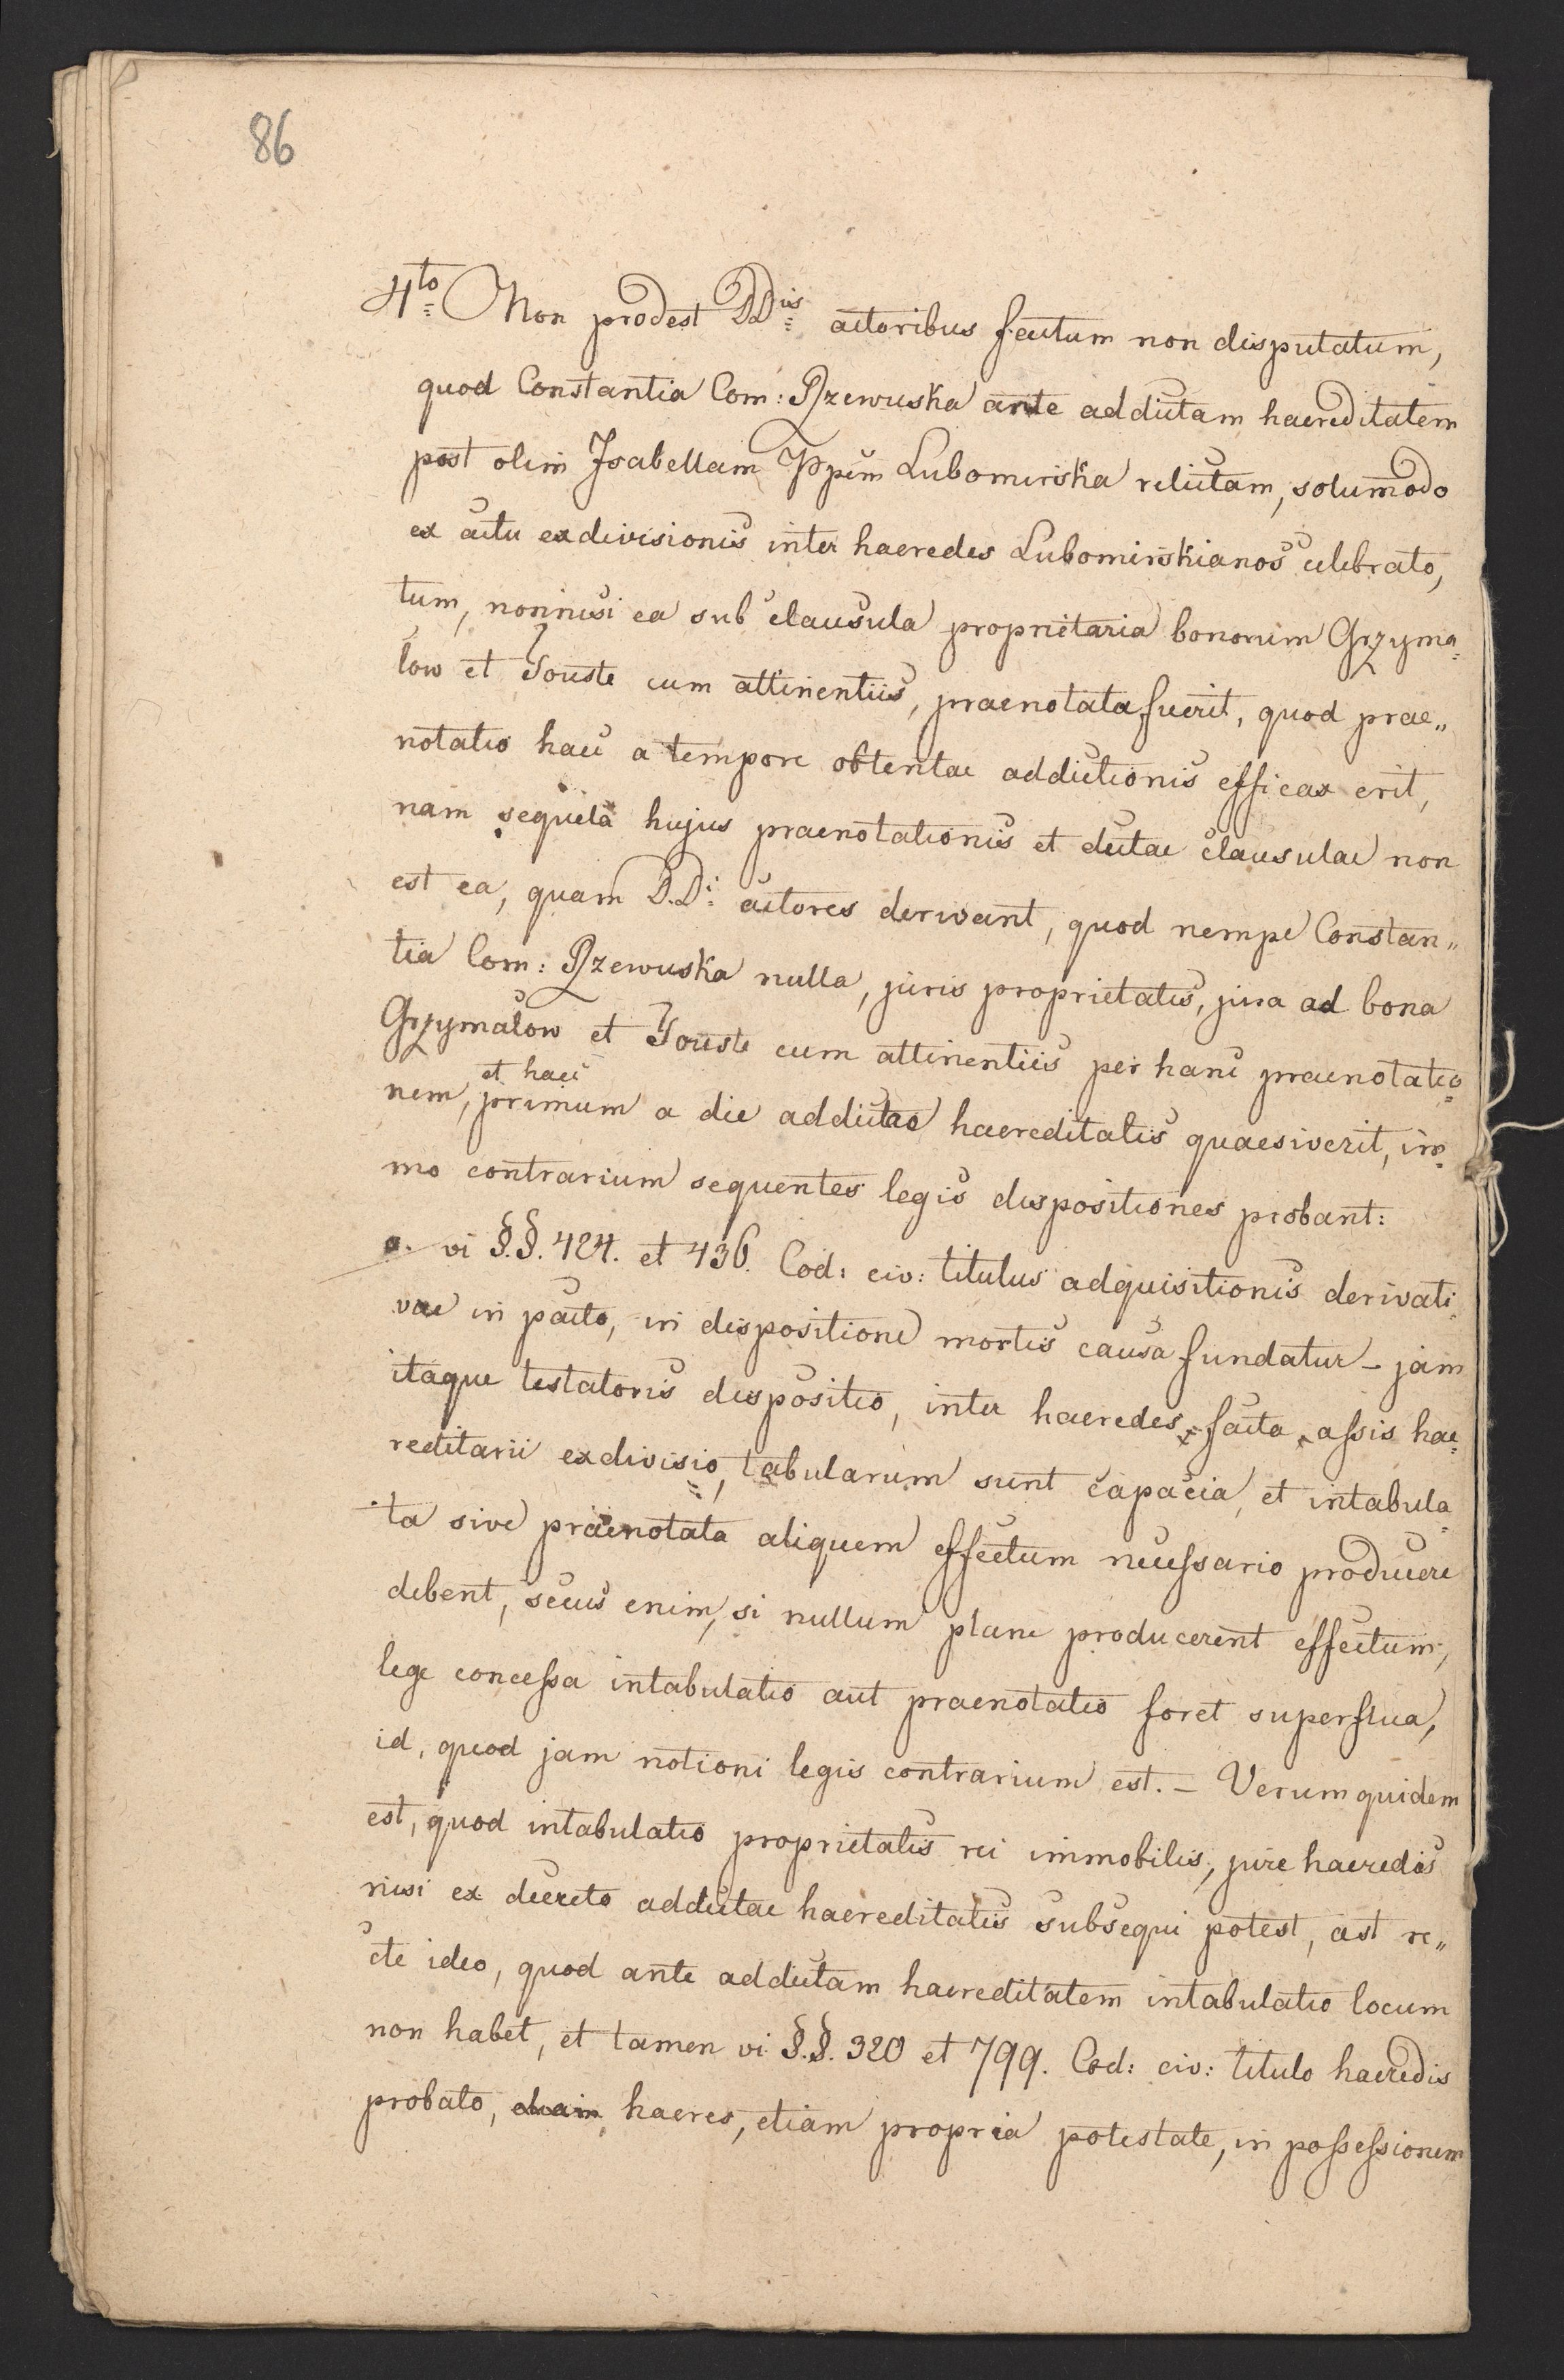 86
4to Non prodest DDis actoribus factum non disputatum,
quod Constantia Com: Rzewuska ante addictam haereditatem
post olim Isabellam Ppem Lubomirska relictam, solummodo
ex actu exdivisionis inter haeredes Lubomirskianos celebrato,
tum, nonnisi ea sub clausula proprietaria bonorum Grzyma=
low et Touste cum attinentiis, praenotata fuerit, quod prae„
notatio haec a tempore obtentae addictionis efficax erit,
nam sequela hujus praenotationis et dictae clausulae non
est ea, quam D.Di: actores derivant, quod nempe Constan„
tia Com: Rzewuska nulla, juris proprietatis, jura ad bona
Grzymalow et Touste cum attinentiis per hanc praenotatio=
et haec
nem, primum a die addictae haereditatis quaesiverit, im=
mo contrarium sequentes legis dispositiones probant:
a. vi §.§. 424. et 436. Cod: civ: titulus adquisitionis derivati=
vae in pacto, in dispositione mortis causa fundatur – jam
itaque testatoris dispositio, inter haeredes facta assis hae=
reditarii exdivisio, tabularum sunt capacia, et intabula=
ta sive praenotata aliquem effectum necessario producere
debent, secus enim, si nullum plane producerent effectum,
lege concessa intabulatio aut praenotatio foret superflua,
id, quod jam notioni legis contrarium est. – Verum quidem
est, quod intabulatio proprietatis rei immobilis, jure haeredis
nisi ex decreto addictae haereditatis subsequi potest, ast re„
cte ideo, quod ante addictam haereditatem intabulatio locum
non habet, et tamen vi §.§. 320 et 799. Cod: civ: titulo haeredis
probato, haeres, etiam propria potestate, in possessionem